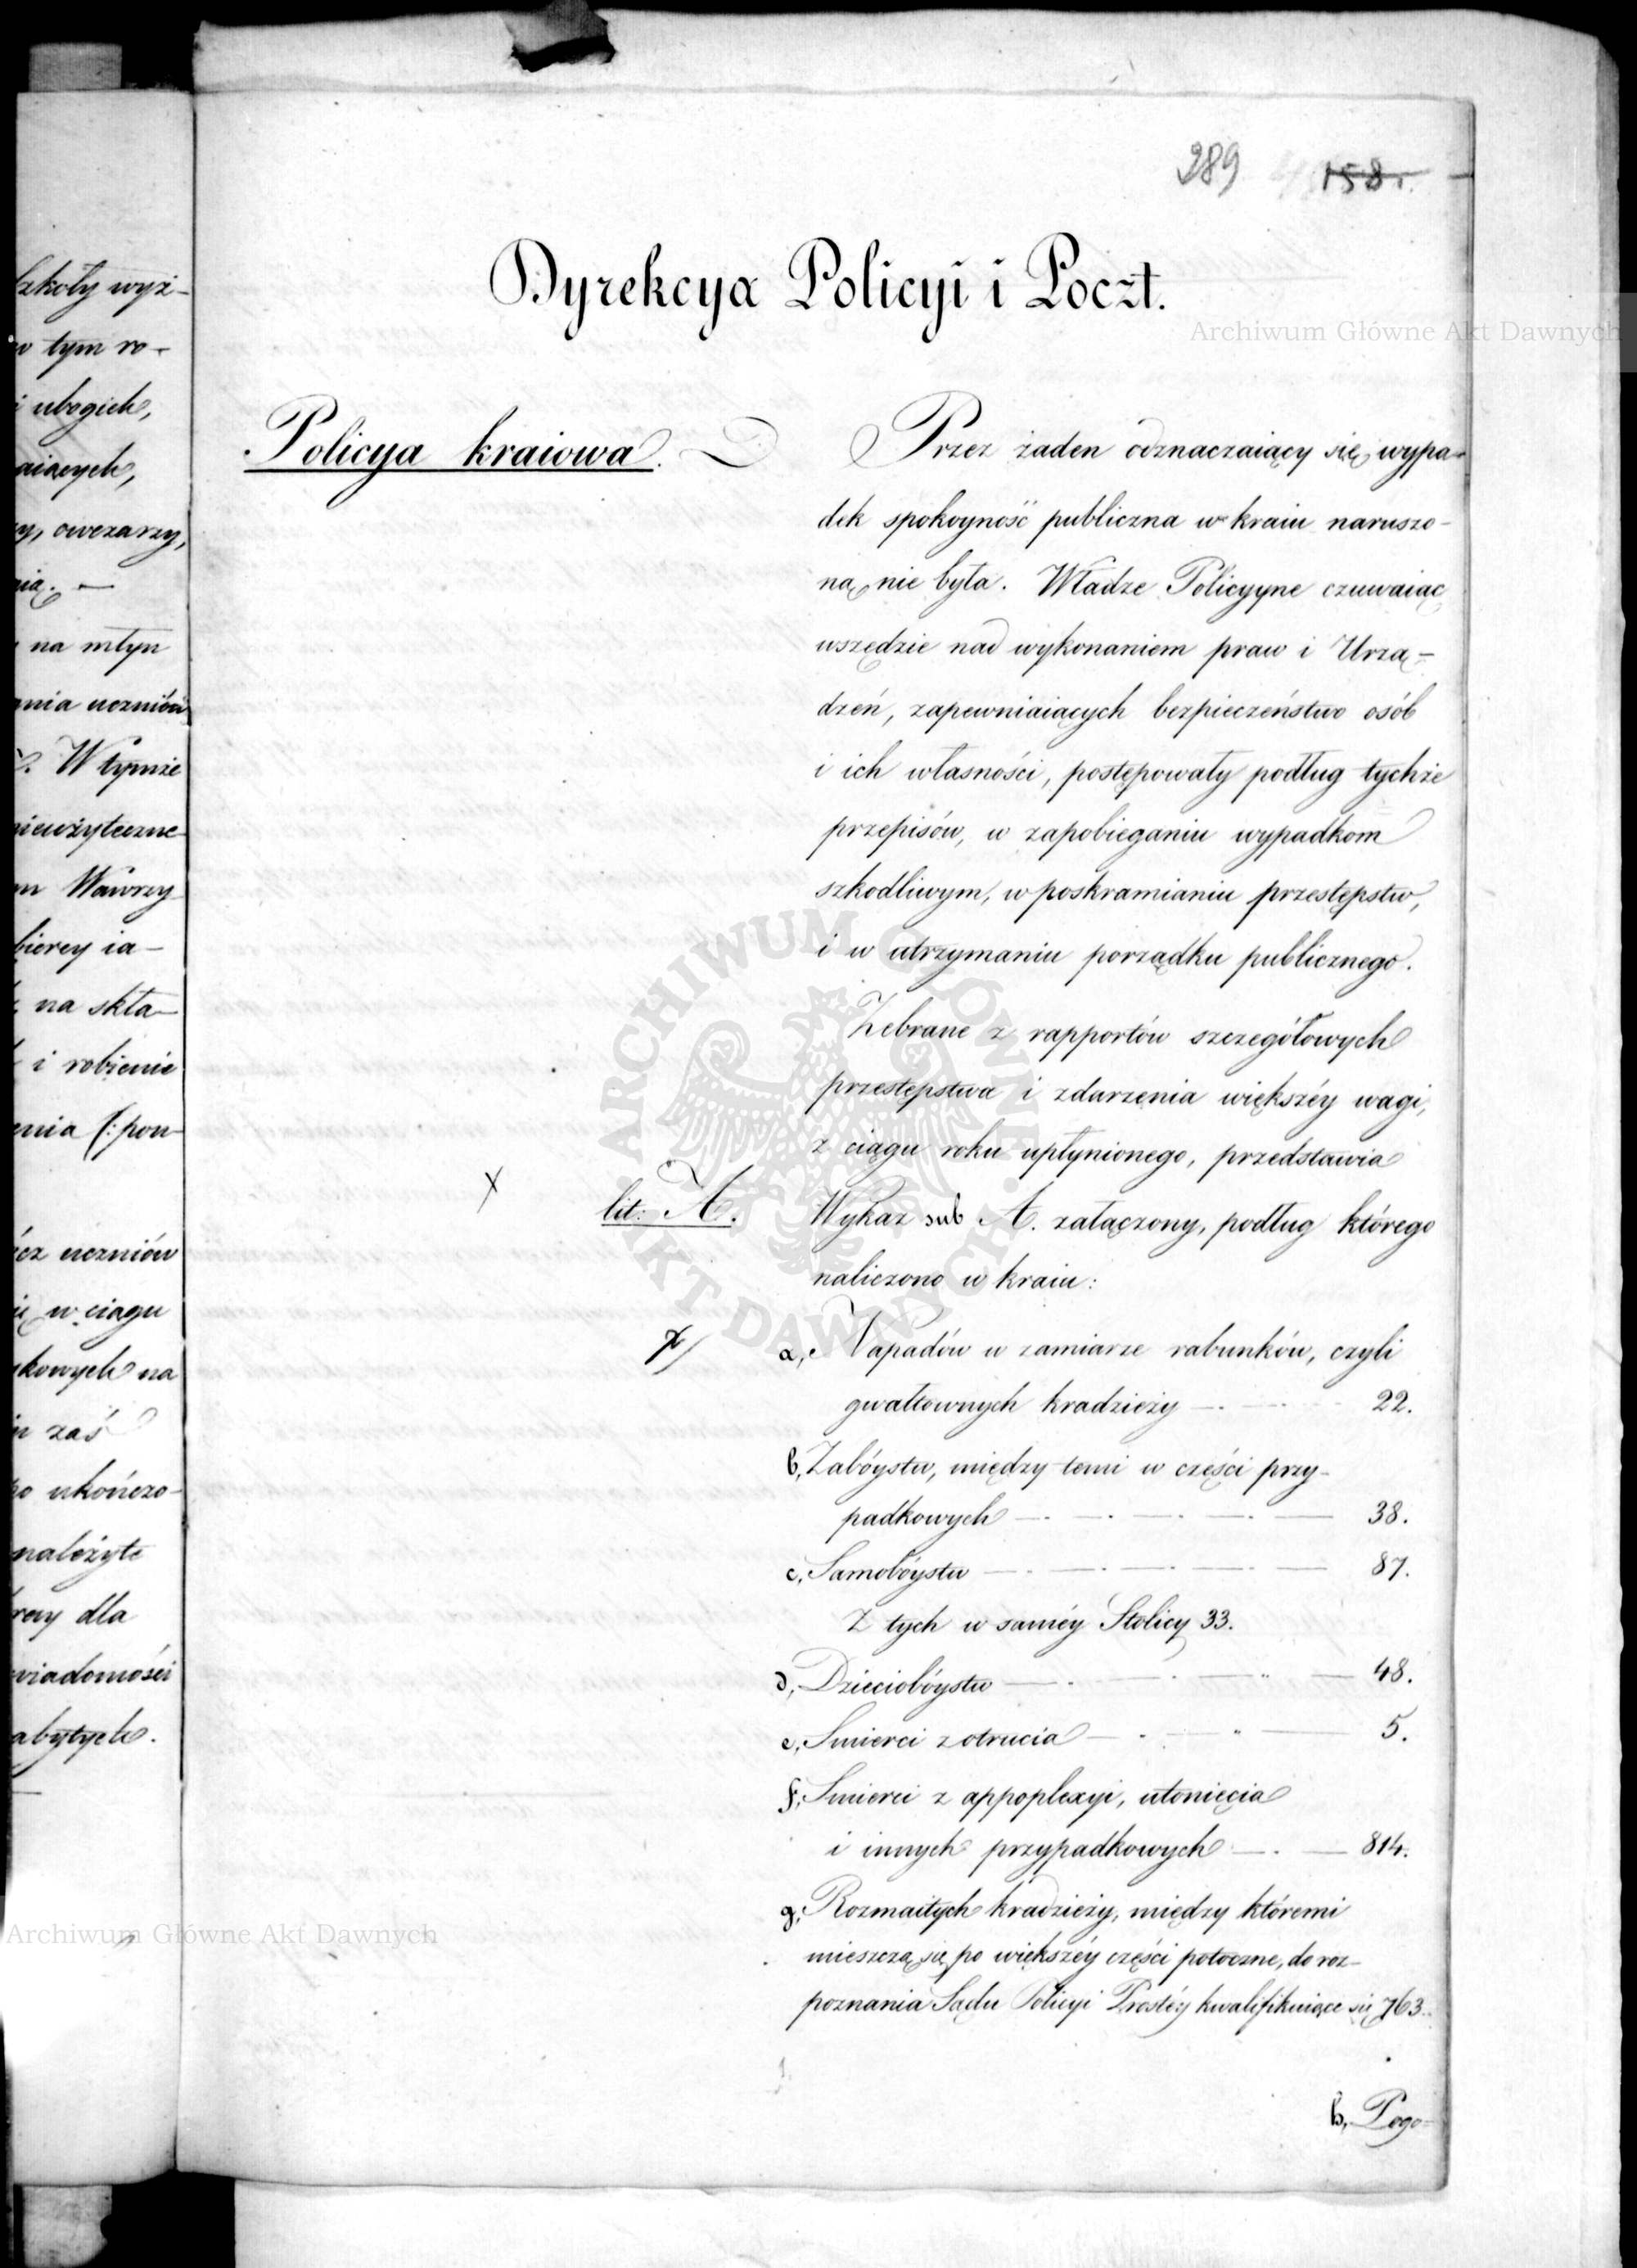 szkoły wyż-
w tym ro-
i ubogich,
aiących,
y, owczarzy,
nia. —
na młyn
ania uczniów
W tymże
nieużyteczne
m Wawrzy
biercy ia-
na skła-
i robienie
enia (: pon-
ócz uczniów
w ciągu
kowych na
zaś
o ukończo-
należyte
dla
wiadomości
abytych.
289 158.
Dyrekcya Policyi i Poczt.
Policya kraiowa.
Przez żaden odznaczaiący się wypa-
dek spokoyność publiczna w kraiu naruszo-
ną nie była. Władze Policyyne czuwaiąc
wszędzie nad wykonaniem praw i Urzą-
dzeń, zapewniaiących bezpieczeństwo osób
i ich własności, postępowały podług tychże
przepisów, w zapobieganiu wypadkom
szkodliwym, w poskramianiu przestępstw,
i w utrzymaniu porządku publicznego.
Zebrane z rapportów szczegółowych
przestępstwa i zdarzenia większéy wagi,
z ciągu roku upłynionego, przedstawia
X lit: A. Wykaz sub A. załączony, podług którego
naliczono w kraiu:
a, Napadów w zamiarze rabunków, czyli
gwałtownych kradzieży — 22.
b, Zabóystw, między temi w części przy-
padkowych — 38.
c, Samobóystw — 87.
Z tych w saméy Stolicy 33.
d, Dzieciobóystw — 48.
e, Smierci z otrucia — 5.
f, Smierci z appoplexyi, utonięcia
i innych przypadkowych — 814.
g, Rozmaitych kradzieży, między któremi
mieszczą się po większéy części potoczne, do roz-
poznania Sądu Policyi Prostéy kwalifikuiące się 763.
h, Pogo-
Archiwum Główne Akt Dawnych
Archiwum Główne Akt Dawnych
ARCHIWUM GŁÓWNE AKT DAWNYCH